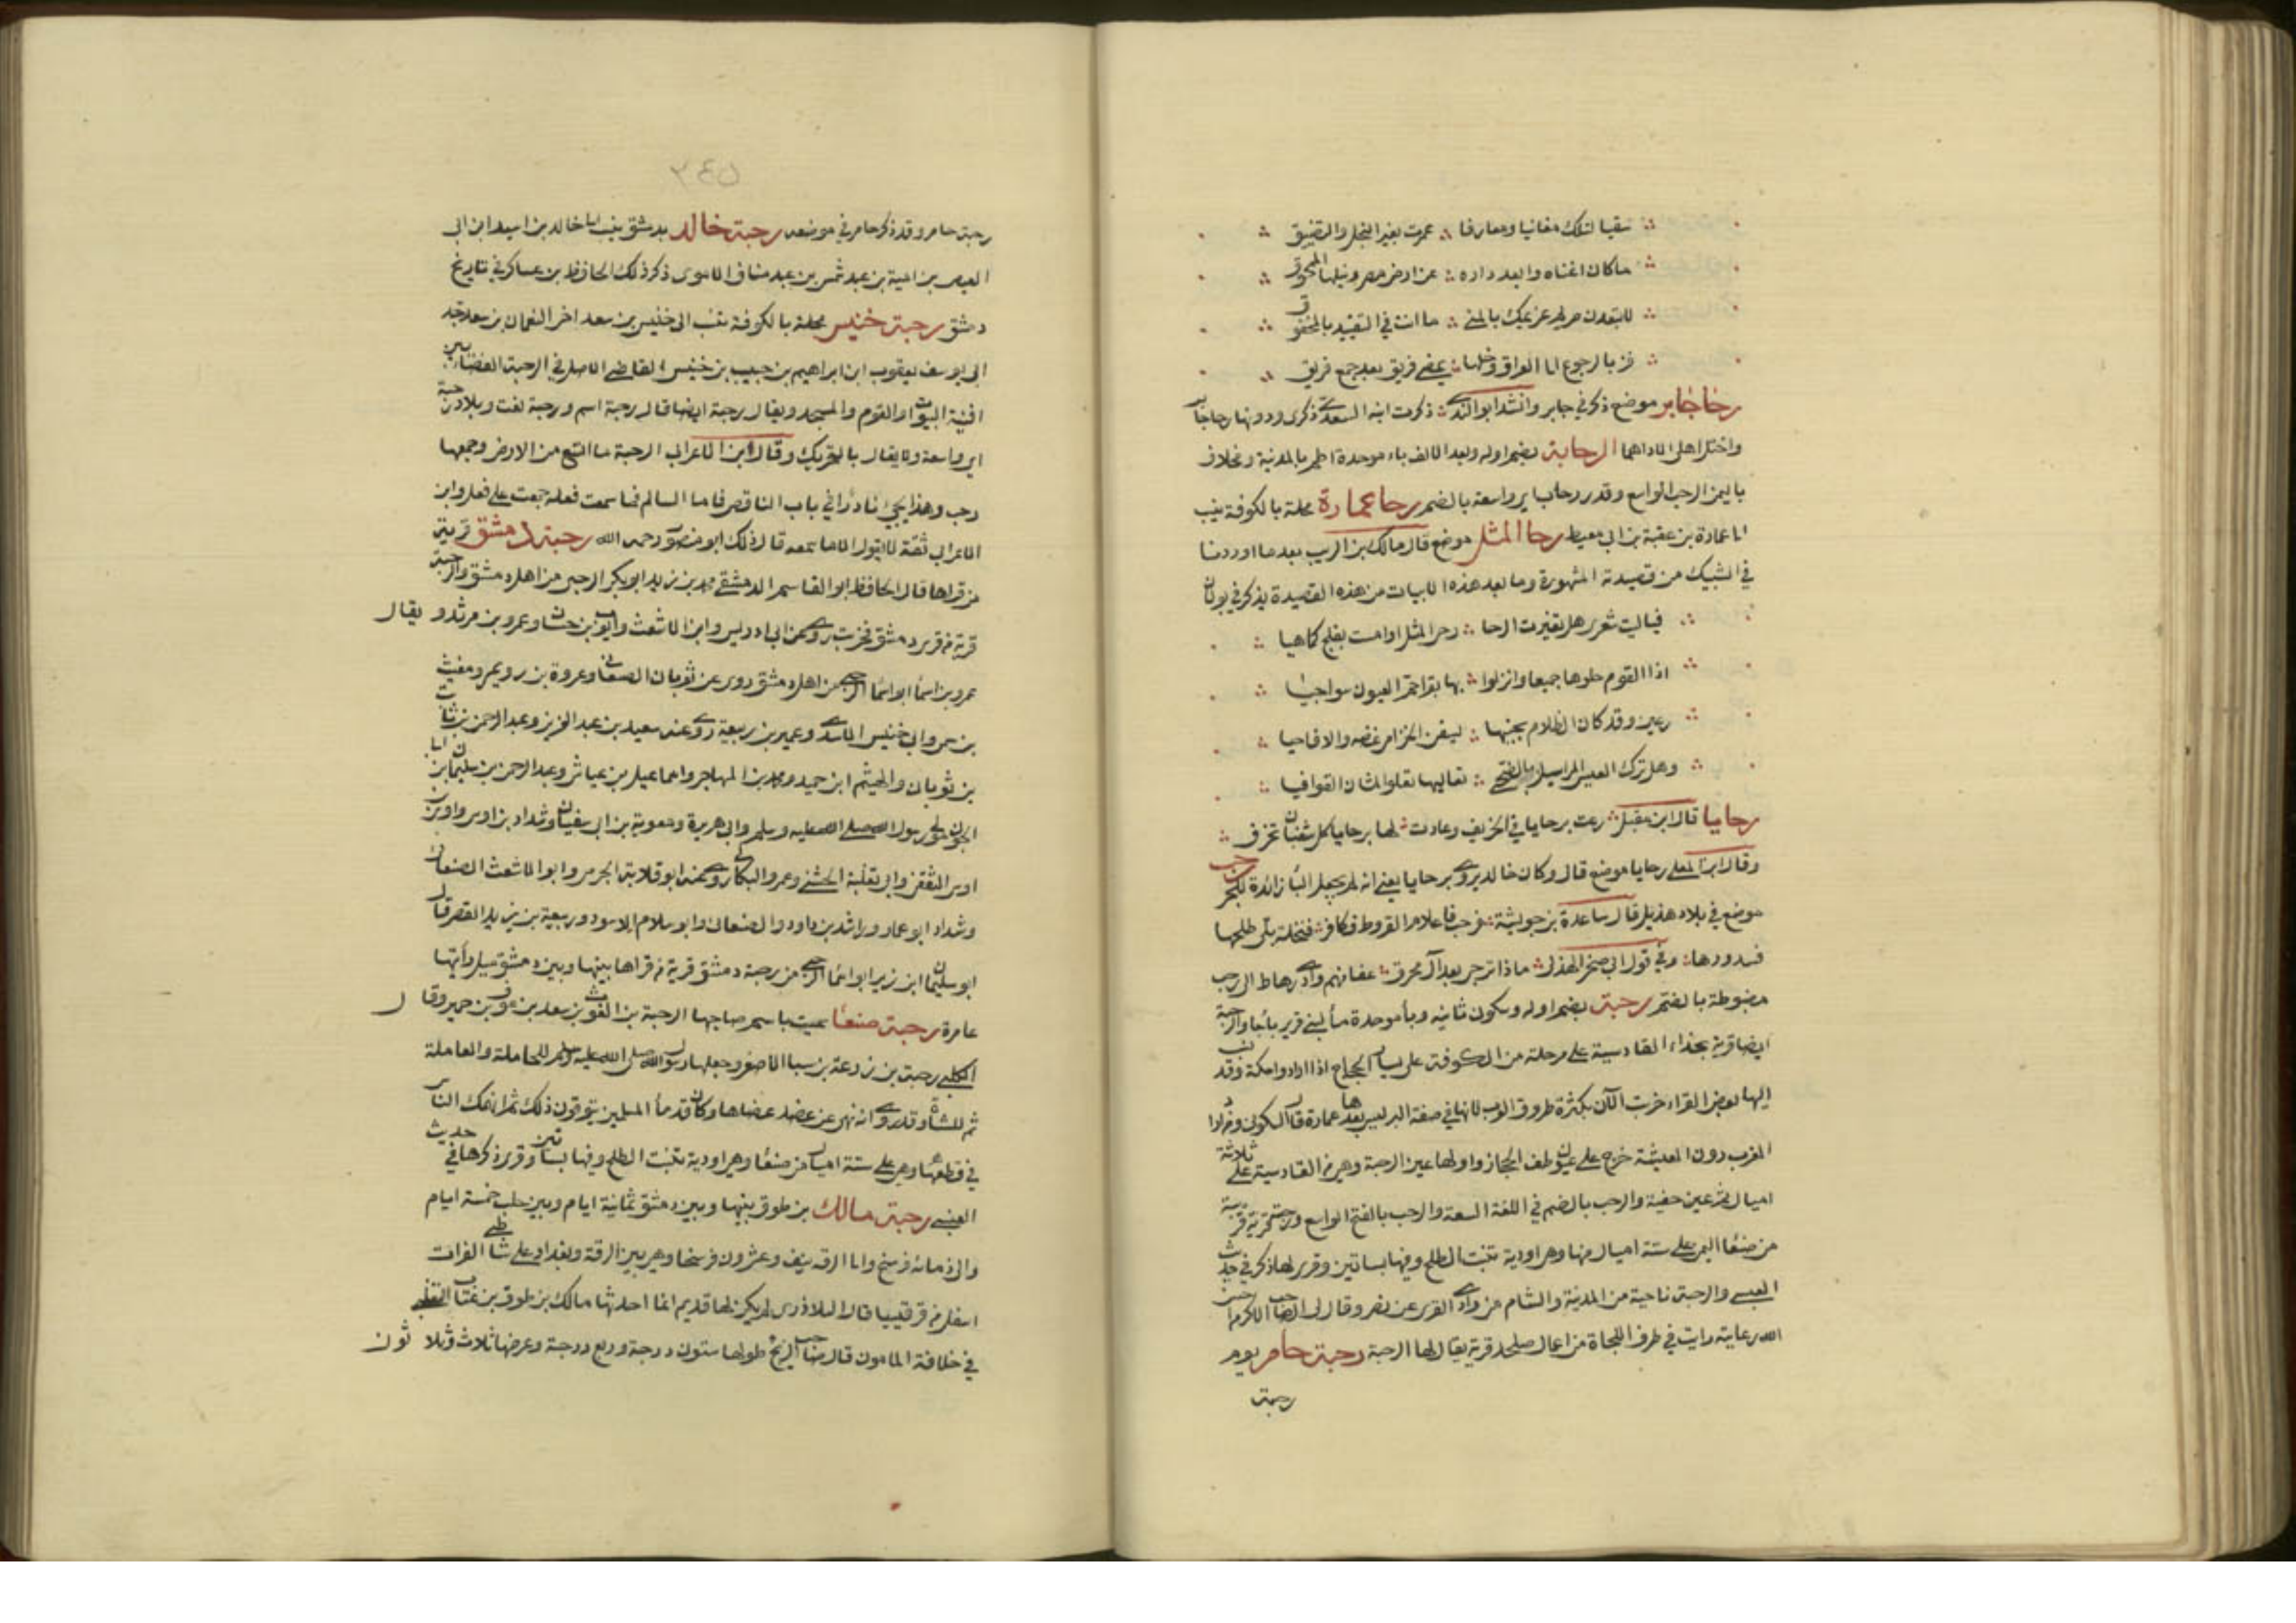 سقيا لتلك مغانيا ومعارفا عمرت بغير البخل والتضييق
ما كان اغناه وابعد داره عن ارض مصر ونيلها الممحوق
لا تبعدن صريد عزمك بالمنى ما انت في التقييد بالمحقوق
فز بالرجوع الى العراق وخلها يمضي فريق بعد جمع فريق
رحا جابر موضع ذكر في جابر وانشد ابو الندى ذكرت ابنة السعدي ذكرى ودونها رحا جابر
واحتل اهلي الاداهما الرحابة بضم اوله وبعد الالف باء موحدة اطم بالمدينة ومخلاف
باليمن الرحب الواسع وقدر رحاب اي واسعة بالضم رحا عمارة محلة بالكوفة تنسب
الى عمارة بن عقبة بن ابي معيط رحا المثل موضع قال مالك بن الريب بعد ما اوردنا
في الشبيك من قصيدته المشهورة وما بعد هذه الابيات من هذه القصيدة يذكر في بولان
فيا ليت شعري هل تغيرت الرحا رحى المثل او امست بفلج كما هيا
اذا القوم حلوها جميعا وانزلوا بها بقرا حم العيون سواجيا
رعين وقد كان الظلام يجنها يسفن الخزامى غضه والاقاحيا
وهل ترك العيس المراسيل بالضحى تعاليها تعلو المتان القوافيا
رحايا قال ابن مقبل رعت برحايا في الخريف وعادت لها برحايا كل شعبان تخرف
وقال ابن المعلى رحايا موضع قال وكان خالد يروي برحايا يعني انه لم يجعل الباء زائدة للجر رحب
موضع في بلاد هذيل قال ساعدة بن جوئية فرحب فاعلام القروط فكافر فنخلة تلى طلحها
فسدورها وفي قول ابي صخر الهذلي ماذا ترجي بعد آل محرق عفا منهم وادي رهاط الى رحب
مضبوطة بالضم رحبة بضم اوله وسكون ثانيه وباء موحدة ماء لبني فرير باجا والرحبة
ايضا قرية بحذاء القادسية على مرحلة من الكوفة على يسار الحجاج اذا ارادوا مكة وقد نسب
اليها بعض القراء خربت الآن بكثرة طروق العرب لانها في صفة البر ليس بعدها عمارة قال السكوني ومن اراد
المغرب دون المغيثة خرج على عيون طف الحجاز واولها عين الرحبة وهي من القادسية على ثلاثة
اميال ثم عين خفية والرحب بالضم في اللغة السعة والرحب بالفتح الواسع ورحبة قرية قريبة
من صنعا اليمن على ستة اميال منها وهي اودية تنبت الطلح وفيها بساتين وقرى لها ذكر في حديث
العنسي والرحبة ناحية من المدينة والشام من وادي القرى عن نصر وقال لي الصاحب الاكرم احسن
الله رعايته رايت في طرف اللجاة من اعمال صلخد قرية يقال لها الرحبة رحبة حامر يوم
رحبة
٣٤٥
رحبة حامر وقد ذكر حامر في موضعه رحبة خالد بدمشق ينسب الى خالد بن اسيد ابن ابي
العيص بن امية بن عبد شمس بن عبد مناف الاموي ذكر ذلك الحافظ بن عساكر في تاريخ
دمشق رحبة خنيس محلة بالكوفة تنسب الى خنيس بن سعد اخي النعمان بن سعد جد
ابي يوسف يعقوب ابن ابراهيم بن حبيب بن خنيس القاضي الاصل في الرحبة الفضاء بين
افنية البيوت او القوم والمسجد ويقال رحبة ايضا قال رحبة اسم ورحبة نعت وبلاد رحبة
اي واسعة ولا يقال بالتحريك وقال ابن الاعرابي الرحبة ما اتسع من الارض وجمعها
رحب وهذا يجيء نادرا في باب الناقص فاما السالم فما سمعت فعلة جمعت على فعل وابن
الاعرابي ثقة لا يقول الا ما سمعه قال ذلك ابو منصور رحمه الله رحبة دمشق قرية
من قراها قال الحافظ ابو القاسم الدمشقي محمد بن يزيد ابو بكر الرحبي من اهل دمشق والرحبة
قرية من قرى دمشق فخربت روى عن ابي ادريس وابن الاشعث وايوب بن حسان وعمرو بن مرثد ويقال
عمرو بن اسماء ابو اسماء الرحبي من اهل دمشق روى عن ثوبان الصنعاني وعروة بن رويم ومغيث
بن سمي وابي خنيس الاسدي وعمير بن ربيعة روى عنه سعيد بن عبد العزيز وعبد الرحمن بن ثابت
بن ثوبان والهيثم ابن حميد ومحمد بن المهاجر واسماعيل بن عياش وعبد الرحمن بن سليمان ابن ابي
الجون مولى رسول الله صلى الله عليه وسلم وابي هريرة ومعوية بن ابي سفيان وشداد بن اوس واوس بن
اوس الثقفي وابي ثعلبة الخشني وعمرو البكاري روى عنه ابو قلابة الجرمي وابو الاشعث الصنعاني
وشداد ابو عمار وراشد بن داود والصنعاني وابو سلام الاسود وربيعة بن يزيد القصير قال
ابو سليمان ابن زبر ابو اسماء الرحبي من رحبة دمشق قرية من قراها بينها وبين دمشق ميل رأيتها
عامرة رحبة صنعاء سميت باسم صاحبها الرحبة بن الغوث بن سعد بن عوف بن حمير وقال
الكلبي رحبة بن زرعة بن سبا الاصغر وجعلها رسول الله صلى الله عليه وسلم للحاملة والعاملة
ثم للشاة وقد روى انه نهى عن عضد عضاها وكان قدماء المسلمين يتوقون ذلك ثم انهمك الناس
في قطعها وهي على ستة اميال من صنعاء وهي اودية تنبت الطلح وفيها بساتين وقرى ذكرها في حديث
العنسي رحبة مالك بن طوق بينها وبين دمشق ثمانية ايام وبين حلب خمسة ايام
والى مائة فرسخ والى الرقة نيف وعشرون فرسخا وهي بين الرقة وبغداد على شاطي الفرات
اسفل من قرقيسيا قال البلاذري لم يكن لها قديم انما احدثها مالك بن طوق بن عتاب التغلبي
في خلافة المامون قال صاحب الزيج طولها ستون درجة وربع درجة وعرضها ثلاث وثلاثون